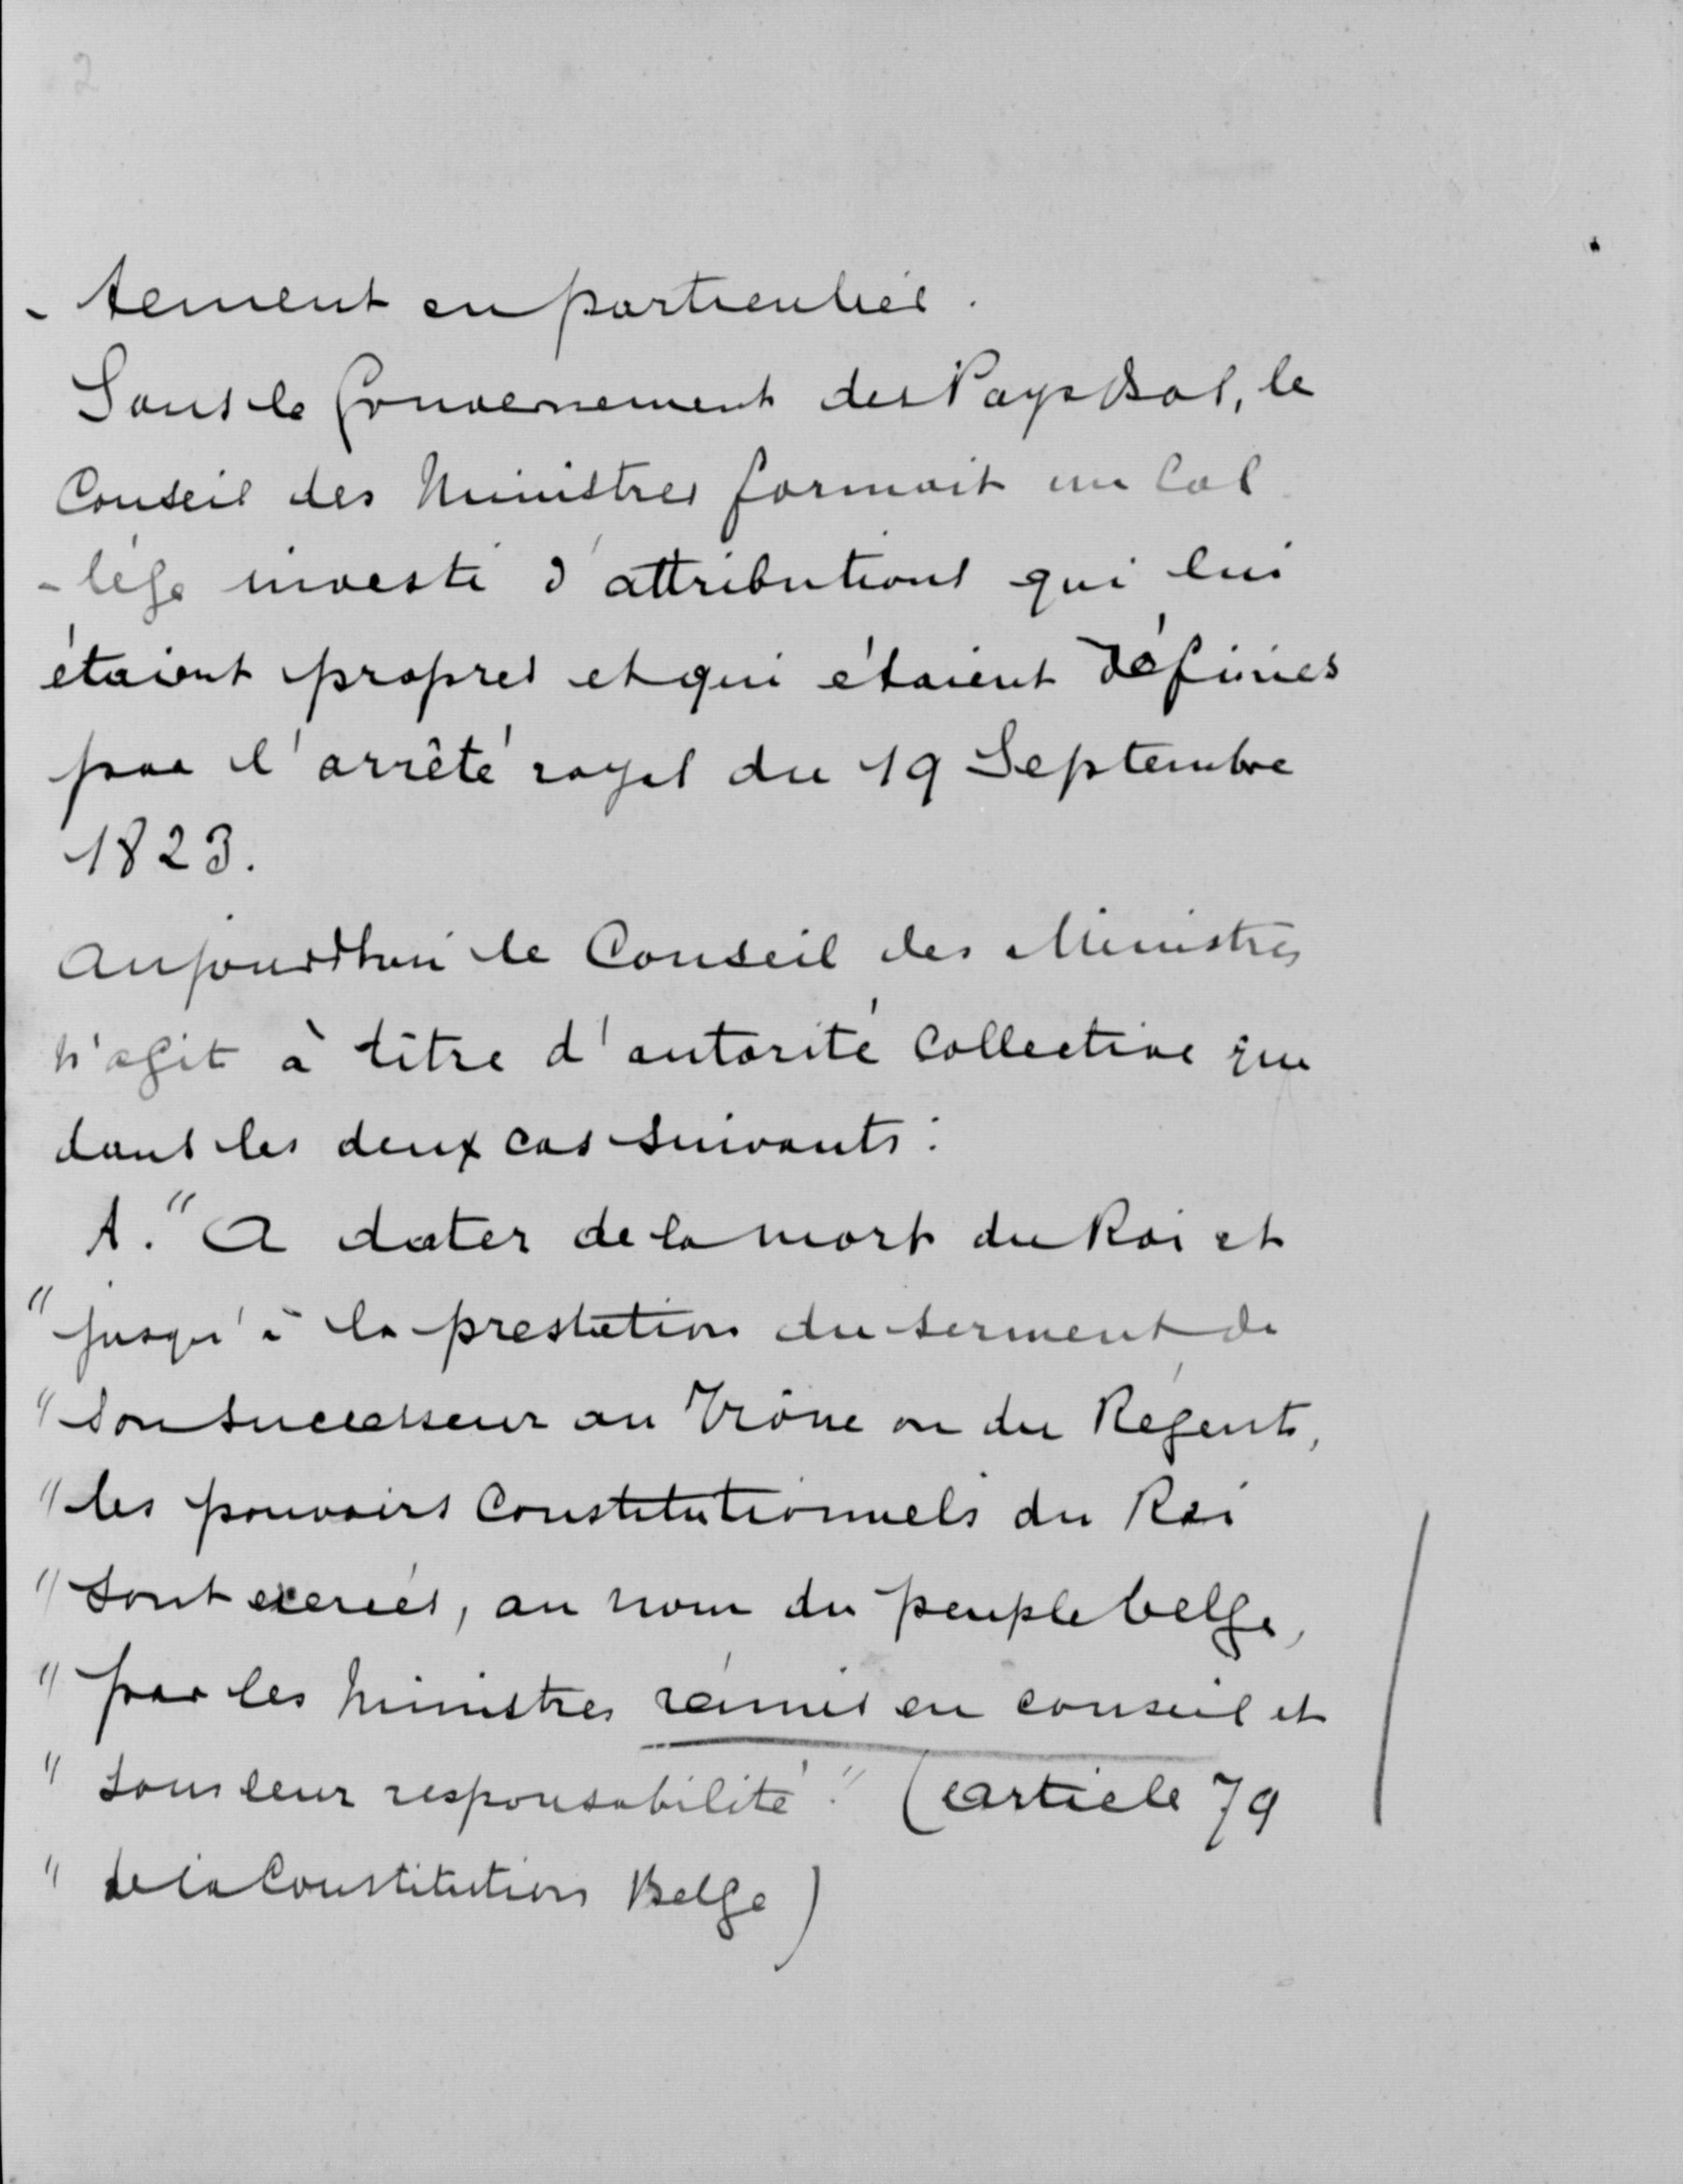 2
- tement en particulier.
Sous le Gouvernement des Pays Bas, le
Conseil des Ministres formait un Col
- lége investi d'attributions qui lui
étaient propres et qui étaient définies
par l'arrêté royal du 19 Septembre
1823.
Aujourd'hui le Conseil des Ministres
n'agit à titre d'autorité collective que
dans les deux cas suivants :
1. " A dater de la mort du Roi et
" jusqu'à la prestation du serment de
" son successeur au Trône ou du Régent,
" les pouvoirs Constitutionnels du Roi
" sont exercés, au nom du peuple belge,
" par les Ministres réunis en conseil et
" sous leur responsabilité." (article 79
" de la Constitution Belge)